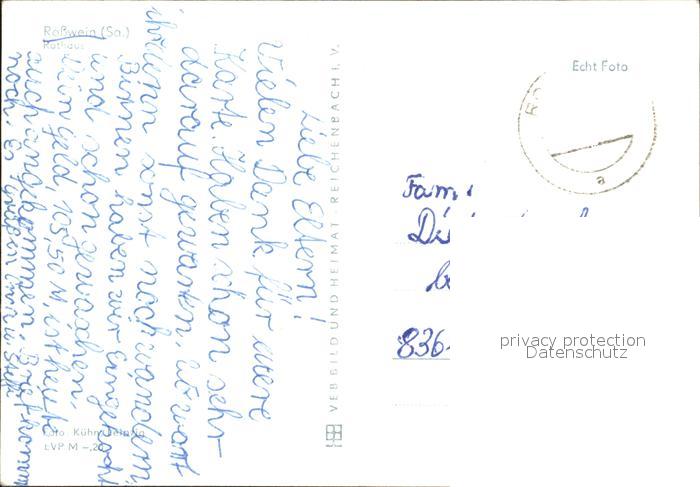 Roßwein (Sa.)
Rathaus
Liebe Eltern!
Vielen Dank für euere
Karte. Haben schon sehr
darauf gewartet, wo wart
ihr denn sonst noch wandern,
Birnen haben wir eingekocht
und schon gewaschen,
Dein Geld, 105,50 M, ist heute
auch angekommen. Brief kommt
noch. Es grüßen
Foto Kühn, Leipzig
EVP M –,20
VEB BILD UND HEIMAT · REICHENBACH I. V.
Echt Foto
a
Fam.
836
privacy protection
Datenschutz